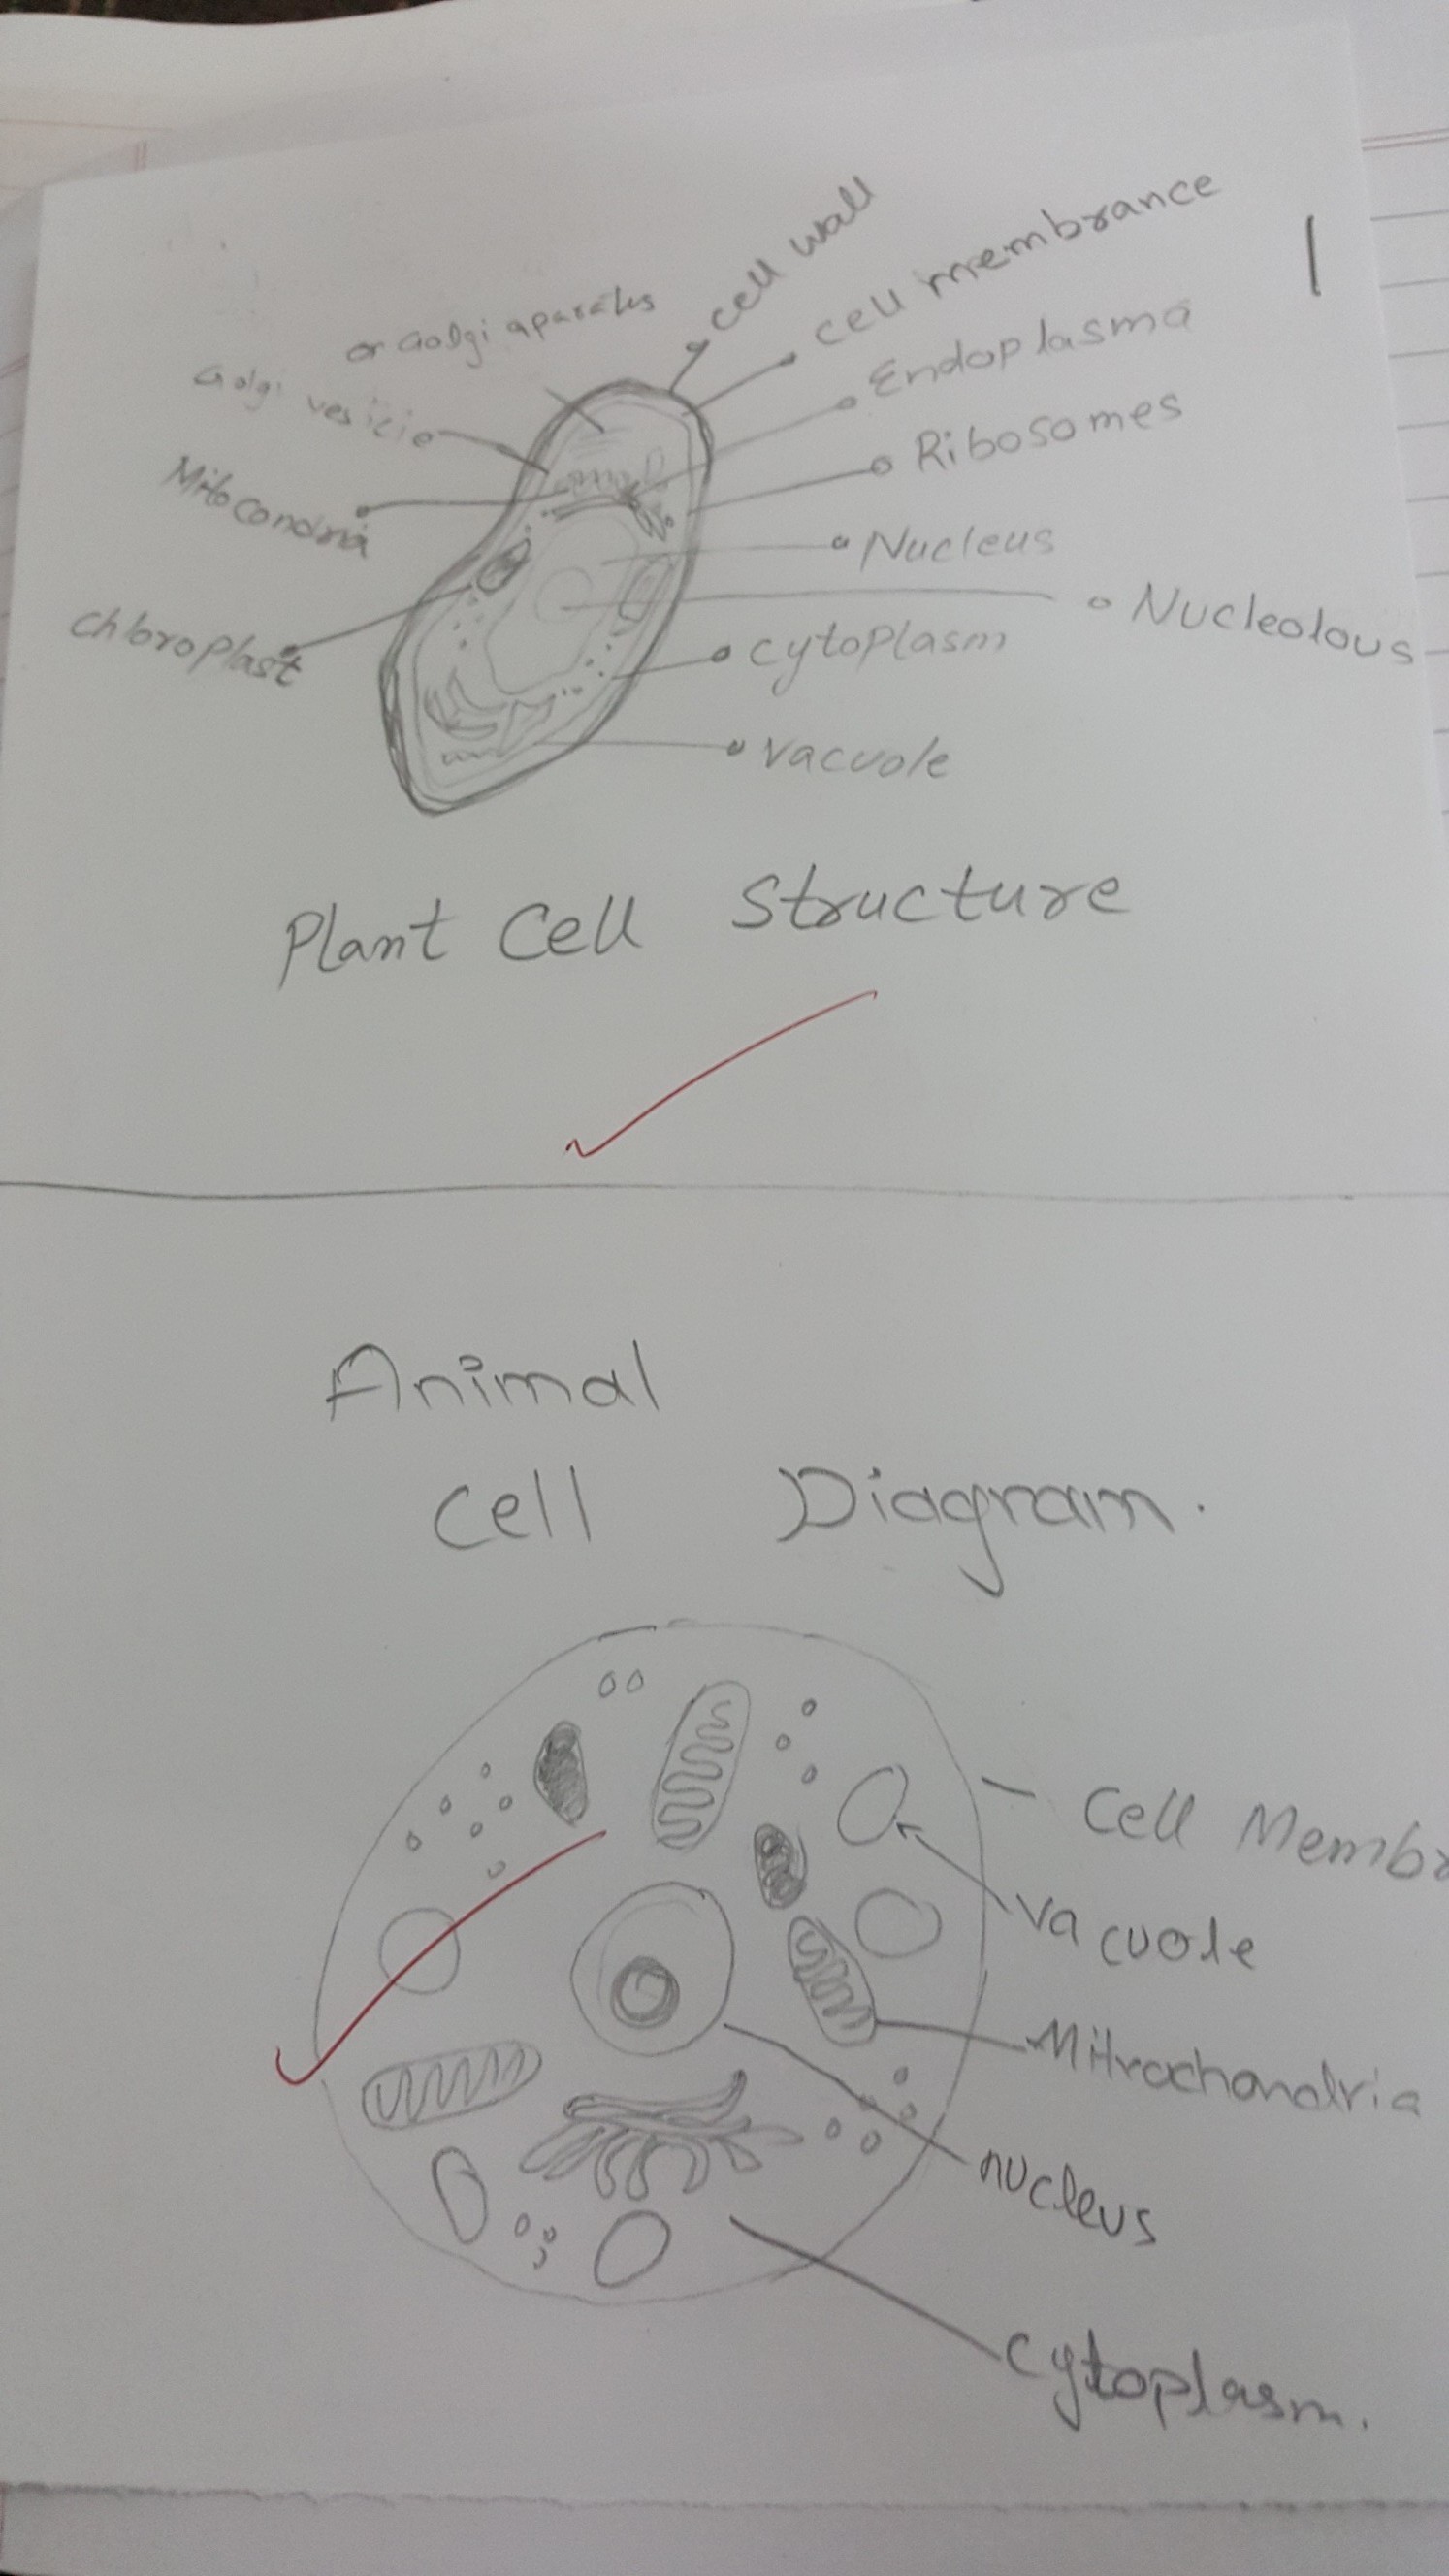 cell wall
cell membrance
or Golgi aparatus
Endoplasma
Golgi vesicle
Ribosomes
Mitocondria
Nucleus
Nucleolous
chloroplast
cytoplasm
vacuole
Plant Cell Structure
Animal
Cell Diagram.
Cell Membr
Vacuole
Mitrochondria
nucleus
cytoplasm.